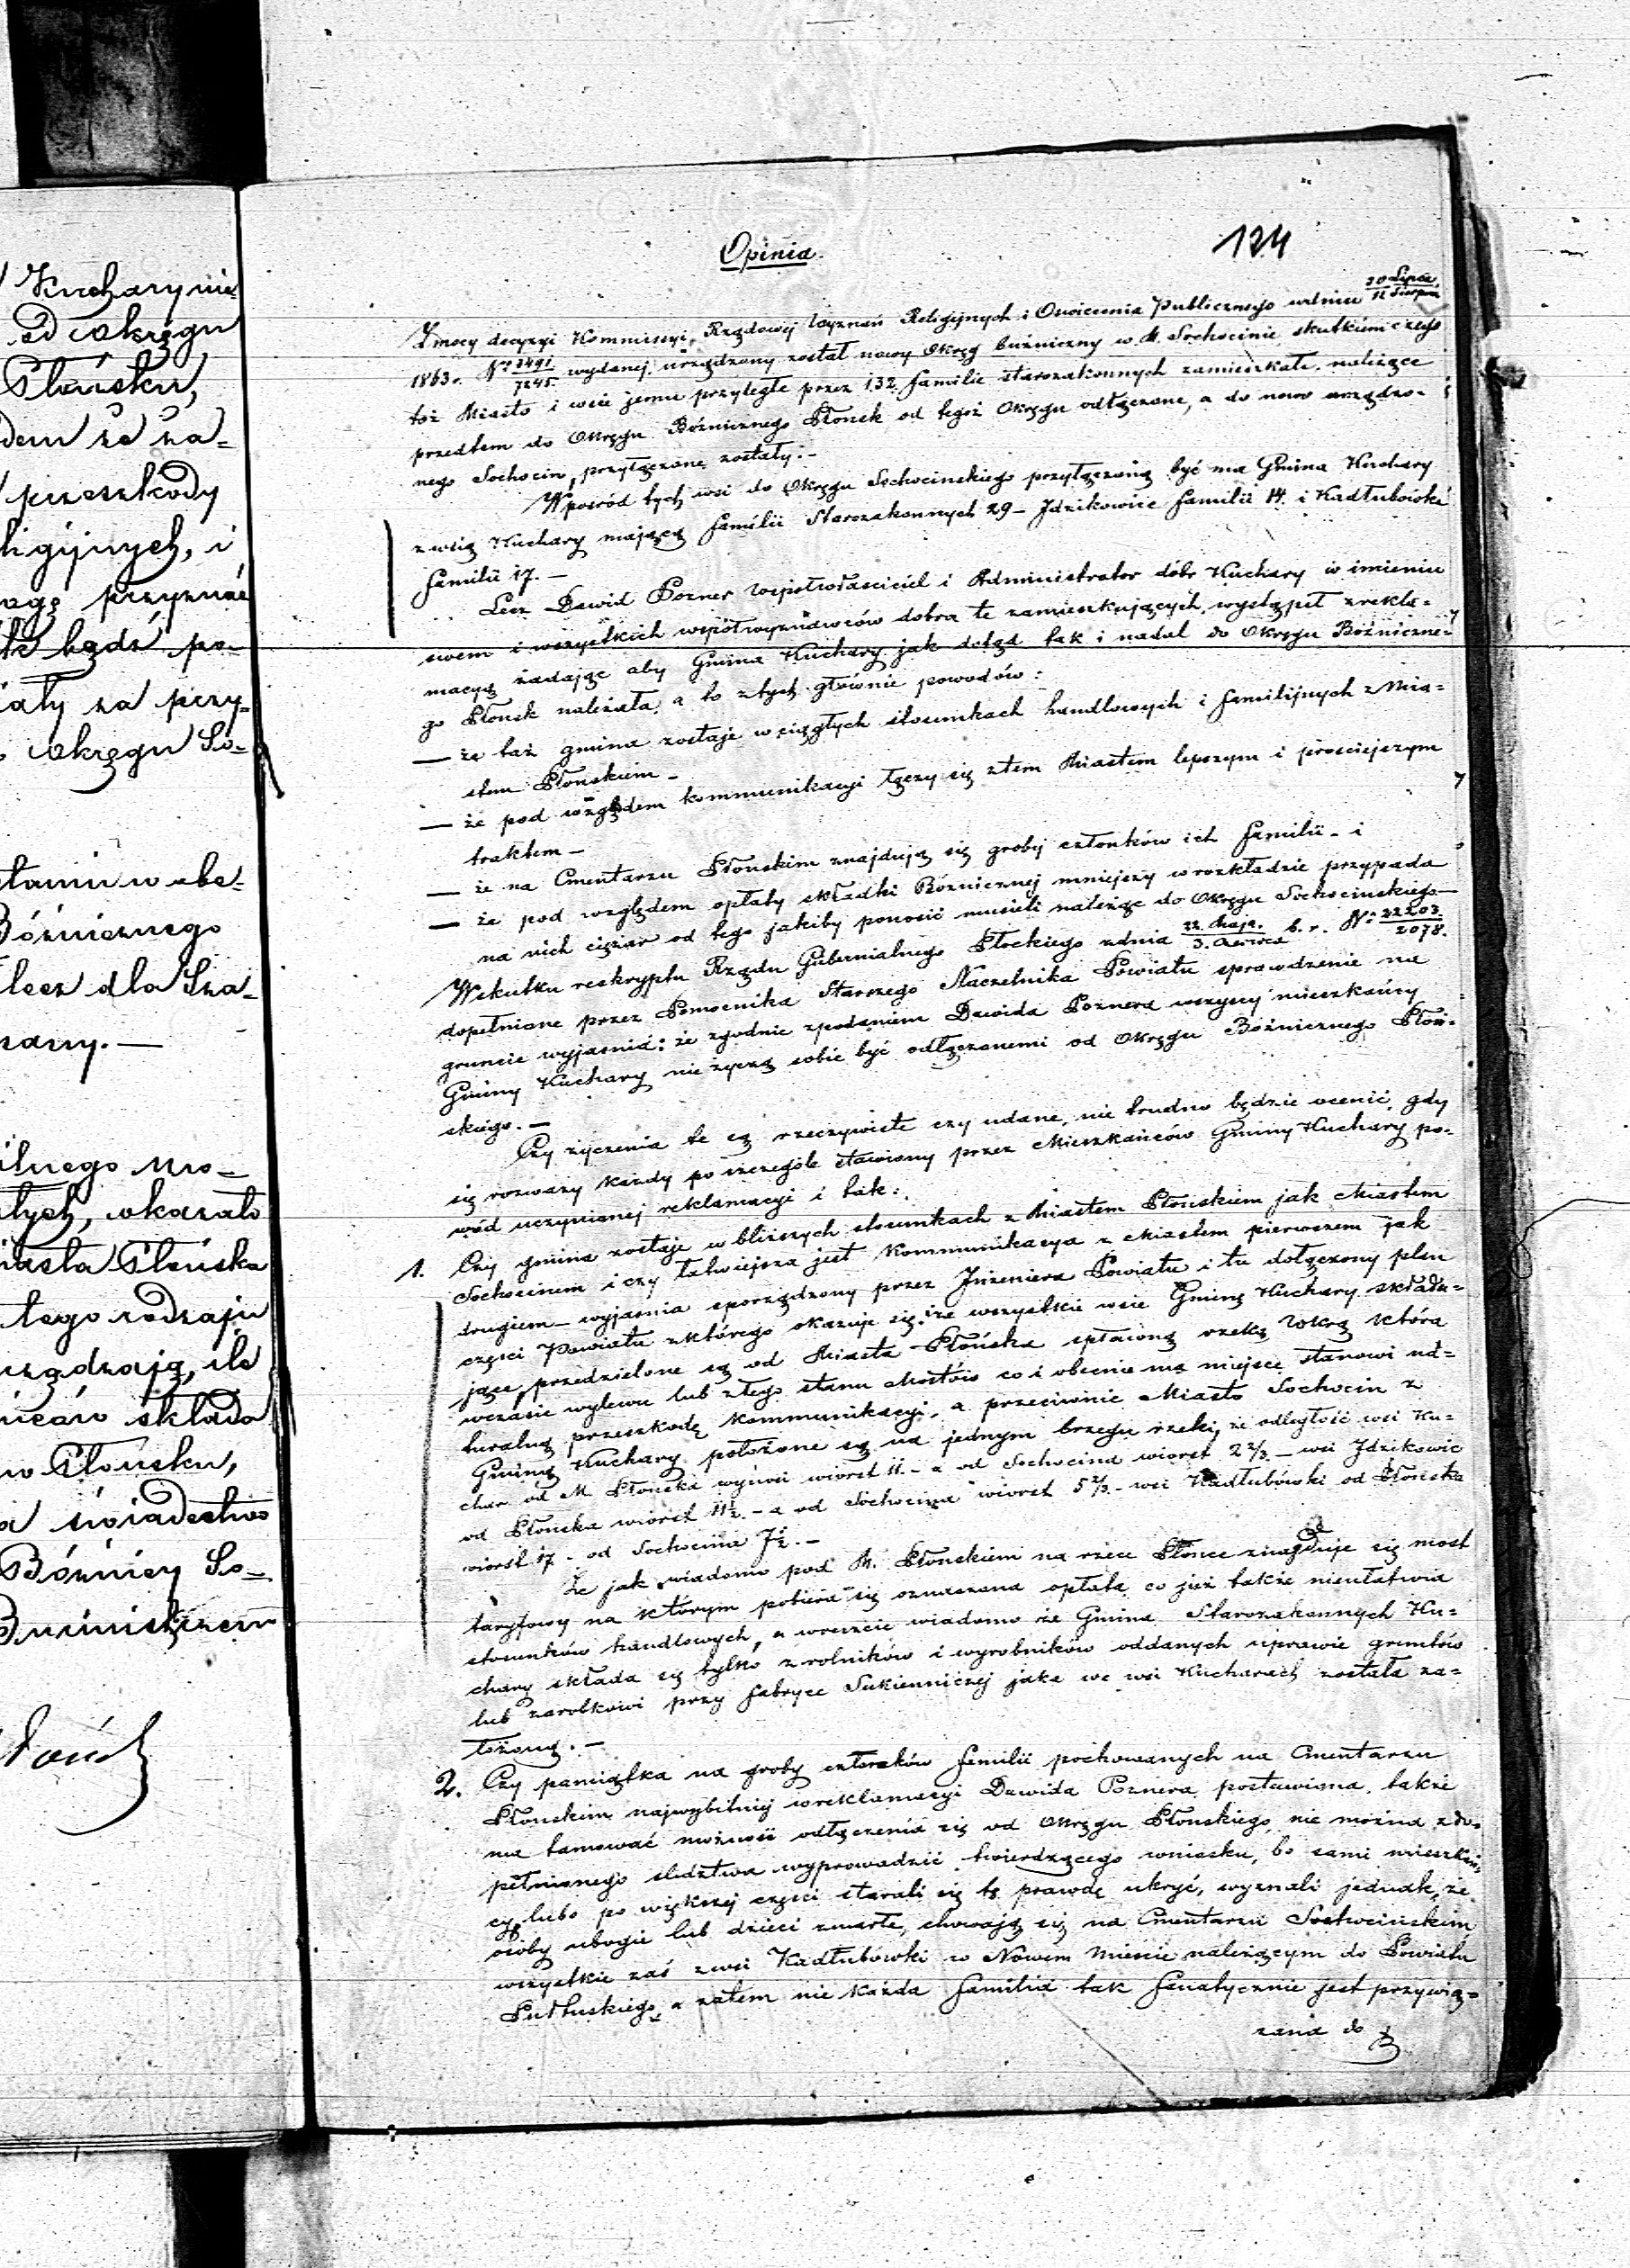 Kuchary nie
od okręgu
Płońsku,
dem że za=
przeszkody
ligijnych, i
przyznać
bądź po=
iały za przy=
okręgu So=
w obe=
Bóżnicznego
lecz dla Sza=
Mło=
łych, okazało
iasta Płońska
tego rodzaju
ządzają, ile
składa
w Płońsku,
świadectwo
Bóżnicy So=
124
Opinia
Z mocy decyzyi Kommissyi Rządowej Wyznań Religijnych i Oświecenia Publicznego w dniu 30 Lipca / 11 Sierpnia
1863 r. Nr 3491/7245 wydanej, urządzony został nowy Okręg bużniczny w M. Sochocinie, skutkiem czego
toż Miasto i wsie jemu przyległe przez 132 familie starozakonnych zamieszkałe, należące
przedtem do Okręgu Bóżnicznego Płońsk od tegoż Okręgu odłączone, a do nowo urządzo=
nego Sochocin, przyłączone zostały.—
Wpośród tych wsi do Okręgu Sochocinskiego przyłączoną być ma Gmina Kuchary
z wsią Kuchary mającą familii Starozakonnych 29 – Idzikowice familii 14 i Kadłubówka
familii 17.—
Lecz Dawid Pozner współwłaściciel i Administrator dóbr Kuchary w imieniu
swem i wszystkich współwyznawców dobra te zamieszkujących, wystąpił z rekla=
macyą żądając aby Gmina Kuchary jak dotąd tak i nadal do Okręgu Bóżniczne=
go Płońsk należała, a to z tych głównie powodów:
— że taż gmina zostaje w ciągłych stosunkach handlowych i familijnych z Mia=
stem Płońskiem –
— że pod względem kommunikacyi łączy się z tem Miastem lepszym i prościejszym
traktem –
— że na Cmentarzu Płońskim znajdują się groby członków ich familii – i
— że pod względem opłaty składki Bóżnicznej mniejszy w rozkładzie przypada
na nich ciężar od tego jakiby ponosić musieli należąc do Okręgu Sochocinskiego –
Wskutku reskryptu Rządu Gubernialnego Płockiego z dnia 22 Maja / 3 Czerwca b. r. Nr 22203/2078.
dopełnione przez Pomocnika Starszego Naczelnika Powiatu sprawdzenie na
gruncie wyjaśnia: że zgodnie z podaniem Dawida Poznera wszyscy mieszkańcy
Gminy Kuchary nie życzą sobie być odłączonemi od Okręgu Bóżnicznego Płoń=
skiego.—
Czy życzenia te są rzeczywiste czy udane, nie trudno będzie ocenić, gdy
się rozważy każdy po szczególe stawiony przez Mieszkańców Gminy Kuchary po=
wód uczynionej reklamacyi i tak:
1. Czy gmina zostaje w bliższych stosunkach z Miastem Płońskiem jak Miastem
Sochocinem i czy łatwiejsza jest Kommunikacya z Miastem pierwszem jak
drugiem – wyjaśnia sporządzony przez Inżeniera Powiatu i tu dołączony plan
części Powiatu z którego okazuje się, że wszystkie wsie Gminę Kuchary składa=
jące, przedzielone są od Miasta Płońska spławną rzeką Wkrą która
w czasie wylewu lub złego stanu Mostów co i obecnie ma miejsce stanowi na=
turalną przeszkodę kommunikacyi, a przeciwnie Miasto Sochocin z
Gminą Kuchary położone są na jednym brzegu rzeki, że odległość wsi Ku=
char od M. Płońska wynosi wiorst 11. – a od Sochocina wiorst 2 2/3 – wsi Idzikowic
od Płońska wiorst 11½ – a od Sochocina wiorst 5 2/3 – wsi Kadłubówki od Płońska
wiorst 17 – od Sochocina 7½.—
Że jak wiadomo pod M. Płońskiem na rzece Płonce znajduje się most
taryfowy na którym pobiera się oznaczona opłata co już także nieułatwia
stosunków handlowych, a wreszcie wiadomo że Gmina Starozakonnych Ku=
chary składa się tylko z rolników i wyrobników oddanych uprawie gruntów
lub zarobkowi przy fabryce Sukienniczej jaka we wsi Kucharach została za=
łożoną.—
2. Czy pamiątka na groby członków familii pochowanych na Cmentarzu
Płońskim najwybitniej w reklamacyi Dawida Poznera postawiona, także
ma tamować możność odłączenia się od Okręgu Płońskiego, nie można z do=
pełnionego śledztwa wyprowadzić twierdzącego wniosku, bo sami mieszkań=
cy, lubo po większej części starali się tę prawdę ukryć, wyznali jednak, że
osoby ubogie lub dzieci zmarłe, chowają się na Cmentarzu Sochocińskim
wszystkie zaś z wsi Kadłubówki w Nowem Mieście należącym do Powiatu
Pułtuskiego, a zatem nie każda familia tak fanatycznie jest przywią=
zana do